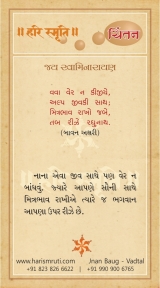 ॥ હરિ સ્મૃતિ ॥
ચિંતન
જય સ્વામિનારાયણ
વવા વેર ન કીજીયે,
અલ્પ જીવકી સાથ;
મિત્રભાવ રાખો જબે,
તબ રીઝે રઘુનાથ.
(બાવન અક્ષરી)
નાના એવા જીવ સાથે પણ વેર ન
બાંધવું, જ્યારે આપણે સૌની સાથે
મિત્રભાવ રાખીએ ત્યારે જ ભગવાન
આપણા ઉપર રીઝે છે.
www.harismruti.com
Jnan Baug - Vadtal
+91 823 826 6622
+91 990 900 6765